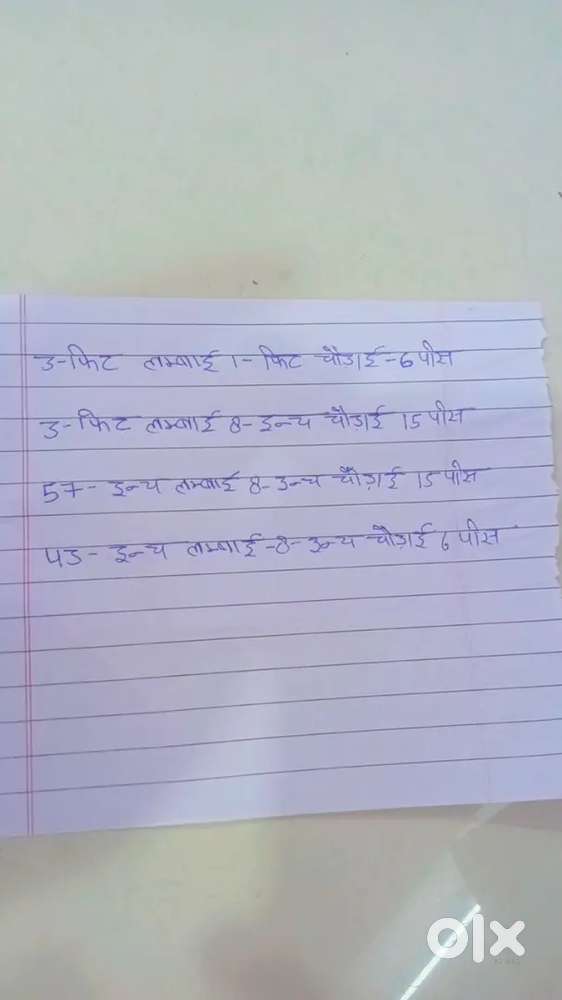 3-फिट लम्बाई 1-फिट चौडाई-6 पीस
3-फिट लम्बाई 8-इन्च चौडाई 15 पीस
57-इन्च लम्बाई 8-इन्च चौड़ाई 15 पीस
43-इन्च लम्बाई-8-इन्च चौड़ाई 6 पीस
olx